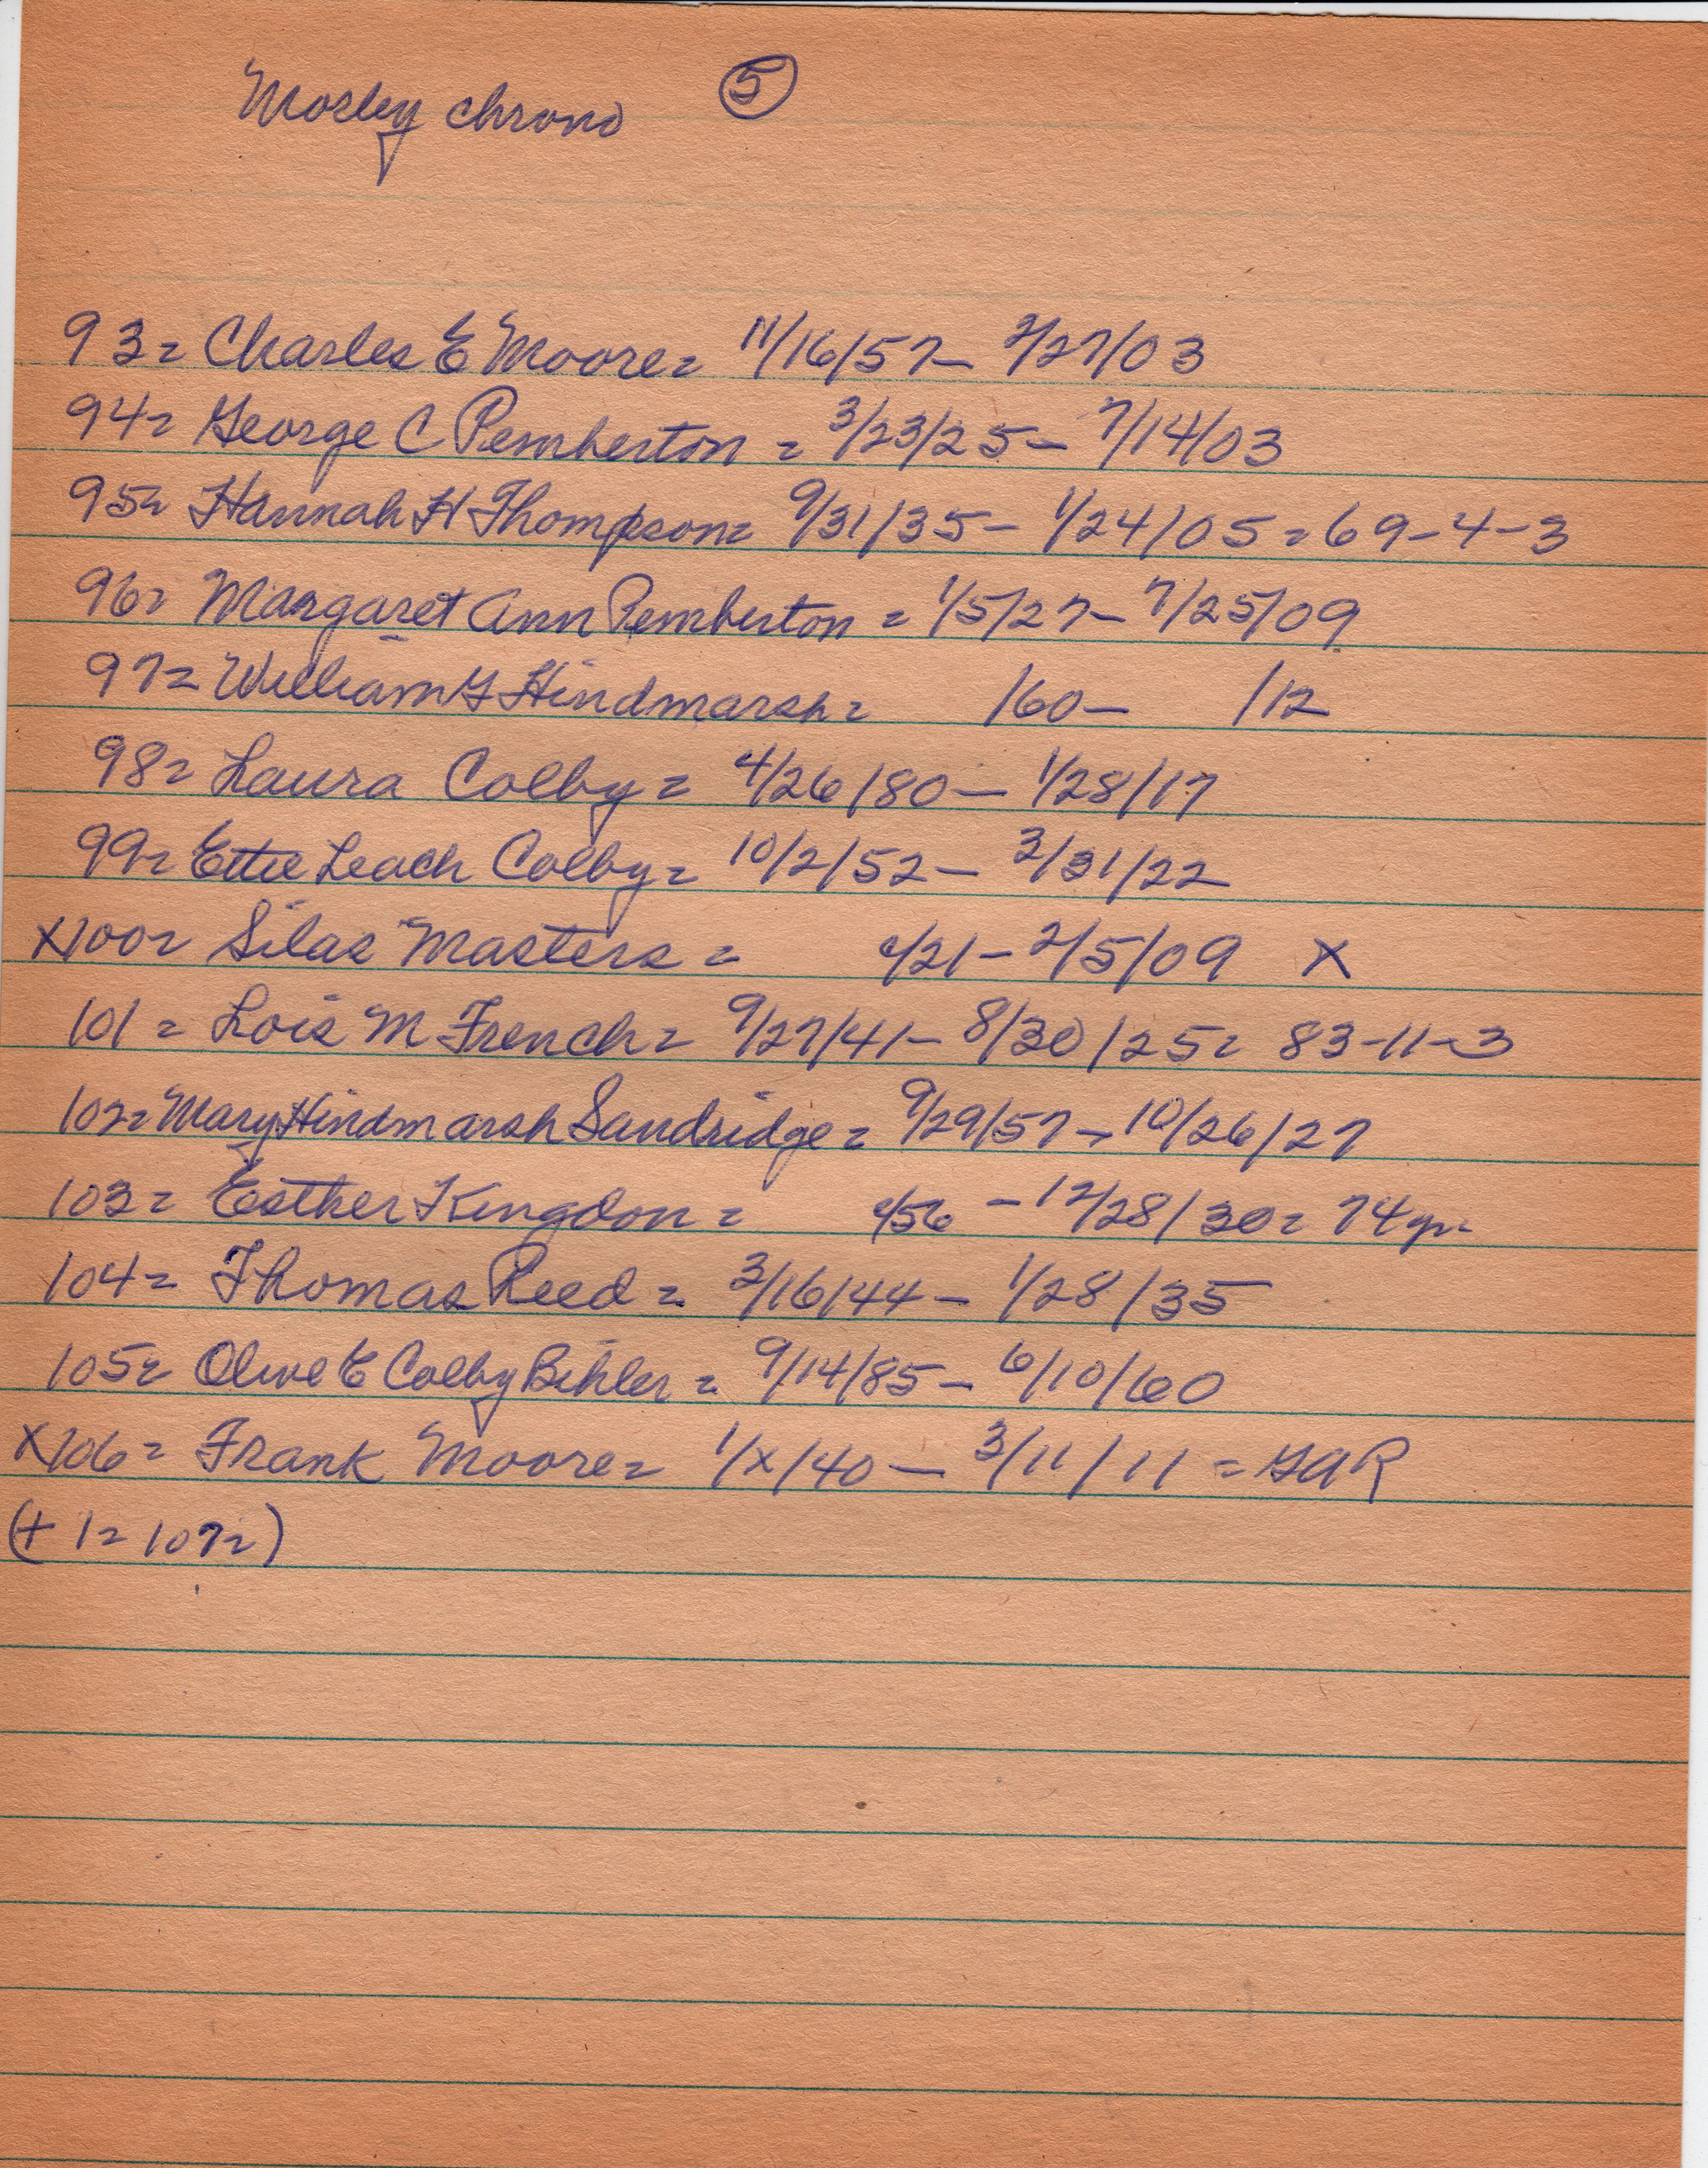 Mosley chrono ⑤
93= Charles E Moore= 11/16/57- 2/27/03
94= George C Pemberton = 3/23/25- 7/14/03
95= Hannah H Thompson= 9/31/35- 1/24/05=69-4-3
96= Margaret Ann Pemberton = 1/5/27- 7/25/09
97= William G Hindmarsh= /60- /12
98= Laura Colby= 4/26/80- 1/28/17
99= Ettie Leach Colby= 10/2/52- 3/31/22
X100= Silas Masters= c/21-2/5/09 X
101= Lois M French= 9/27/41- 8/30/25= 83-11-3
102= Mary Hindmarsh Sandridge= 9/29/57-10/26/27
103= Esther Kingdon= c/56 -12/28/30=74yr
104= Thomas Reed= 3/16/44- 1/28/35
105= Olive E Colby Bihler= 9/14/85- 6/10/60
X106= Frank Moore= 1/x/40- 3/11/11=GAR
(+ 1=107=)